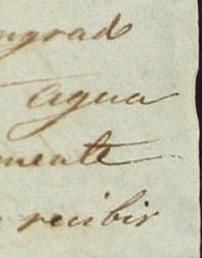 ngrad
agua
mente
recibir